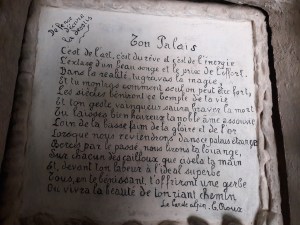 Défense
d'écrire
la dessus
Ton Palais
C'est de l'art, c'est du rêve et c'est de l'énergie
L'extase d'un beau songe et le prix de l'effort.
Dans la réalité, tu gravas la magie,
Et tu montras comment seul on peut être fort,
Les siècles béniront ce temple de la vie
Et ton geste vainqueur saura braver la mort
Tu laisses bien heureux ta noble âme assouvie
Loin de la basse faim de la gloire et de l'or
Lorsque nous reviendrons dans ce palais étrange
Forcés par le passé, nous vivrons ta louange,
Sur chacun des cailloux que cisela ta main
Et, devant ton labeur à l'idéal superbe
Tous, en te bénissant, t'offriront une gerbe
Où vivra la beauté de ton riant chemin